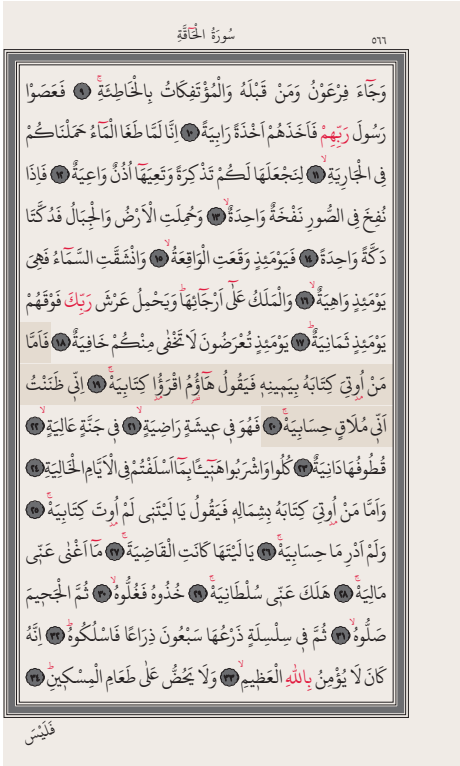 ٥٦٦ سُورَةُ الْحَاۤقَّةِ
وَجَاۤءَ فِرْعَوْنُ وَمَنْ قَبْلَهُ وَالْمُؤْتَفِكَاتُ بِالْخَاطِئَةِۚ ٩ فَعَصَوْا
رَسُولَ رَبِّهِمْ فَاَخَذَهُمْ اَخْذَةً رَابِيَةً ١٠ اِنَّا لَمَّا طَغَا الْمَاۤءُ حَمَلْنَاكُمْ
فِى الْجَارِيَةِۙ ١١ لِنَجْعَلَهَا لَكُمْ تَذْكِرَةً وَتَعِيَهَاۤ اُذُنٌ وَاعِيَةٌ ١٢ فَاِذَا
نُفِخَ فِى الصُّورِ نَفْخَةٌ وَاحِدَةٌۙ ١٣ وَحُمِلَتِ الْاَرْضُ وَالْجِبَالُ فَدُكَّتَا
دَكَّةً وَاحِدَةً ١٤ فَيَوْمَئِذٍ وَقَعَتِ الْوَاقِعَةُۙ ١٥ وَانْشَقَّتِ السَّمَاۤءُ فَهِىَ
يَوْمَئِذٍ وَاهِيَةٌۙ ١٦ وَالْمَلَكُ عَلٰۤى اَرْجَاۤئِهَاۜ وَيَحْمِلُ عَرْشَ رَبِّكَ فَوْقَهُمْ
يَوْمَئِذٍ ثَمَانِيَةٌۜ ١٧ يَوْمَئِذٍ تُعْرَضُونَ لَا تَخْفٰى مِنْكُمْ خَافِيَةٌ ١٨ فَاَمَّا
مَنْ اُو۫تِىَ كِتَابَهُ بِيَمِينِهِ فَيَقُولُ هَاۤؤُ۬مُ اقْرَؤُ۫ا كِتَابِيَهْۚ ١٩ اِنّٖى ظَنَنْتُ
اَنّٖى مُلَاقٍ حِسَابِيَهْۚ ٢٠ فَهُوَ فٖى عٖيشَةٍ رَاضِيَةٍۙ ٢١ فٖى جَنَّةٍ عَالِيَةٍۙ ٢٢
قُطُوفُهَا دَانِيَةٌ ٢٣ كُلُوا وَاشْرَبُوا هَنٖيـًٔا بِمَاۤ اَسْلَفْتُمْ فِى الْاَيَّامِ الْخَالِيَةِ ٢٤
وَاَمَّا مَنْ اُو۫تِىَ كِتَابَهُ بِشِمَالِهِ فَيَقُولُ يَا لَيْتَنٖى لَمْ اُو۫تَ كِتَابِيَهْۚ ٢٥
وَلَمْ اَدْرِ مَا حِسَابِيَهْۚ ٢٦ يَا لَيْتَهَا كَانَتِ الْقَاضِيَةَۚ ٢٧ مَاۤ اَغْنٰى عَنّٖى
مَالِيَهْۚ ٢٨ هَلَكَ عَنّٖى سُلْطَانِيَهْۚ ٢٩ خُذُوهُ فَغُلُّوهُۙ ٣٠ ثُمَّ الْجَحٖيمَ
صَلُّوهُۙ ٣١ ثُمَّ فٖى سِلْسِلَةٍ ذَرْعُهَا سَبْعُونَ ذِرَاعًا فَاسْلُكُوهُۜ ٣٢ اِنَّهُ
كَانَ لَا يُؤْمِنُ بِاللّٰهِ الْعَظٖيمِۙ ٣٣ وَلَا يَحُضُّ عَلٰى طَعَامِ الْمِسْكٖينِۜ ٣٤
فَلَيْسَ